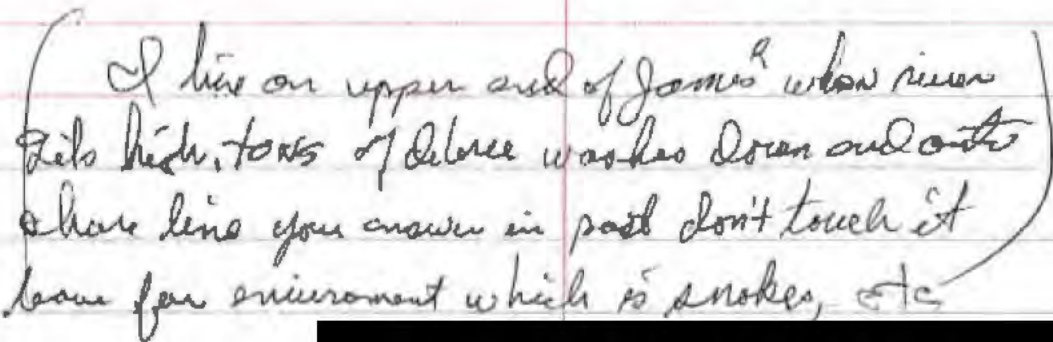 ( I live on upper end of James when river
gets high, tons of debree washes down and onto
shore line your answer in past don't touch it
leave for enviroment which is snakes, etc )